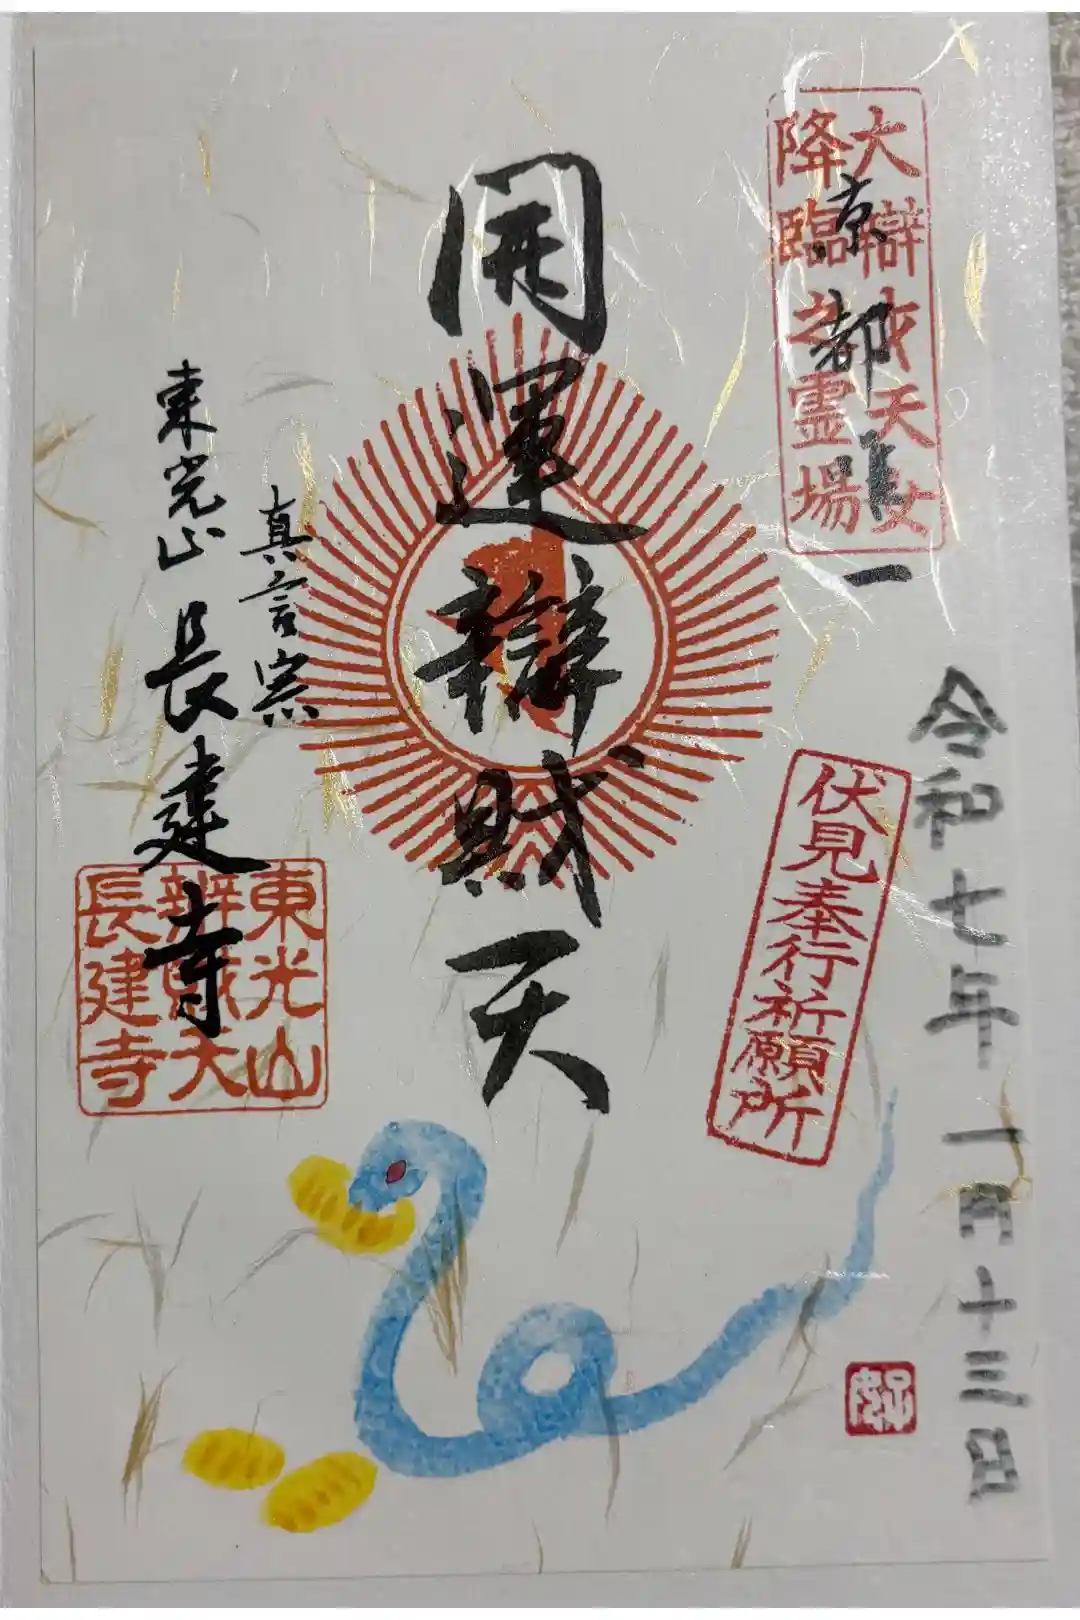 大辯才天女
降臨之霊場
京都一
令和七年一月十三日
伏見奉行祈願所
開運辯財天
真言宗
東光山 長建寺
東光山
辨財天
長建寺